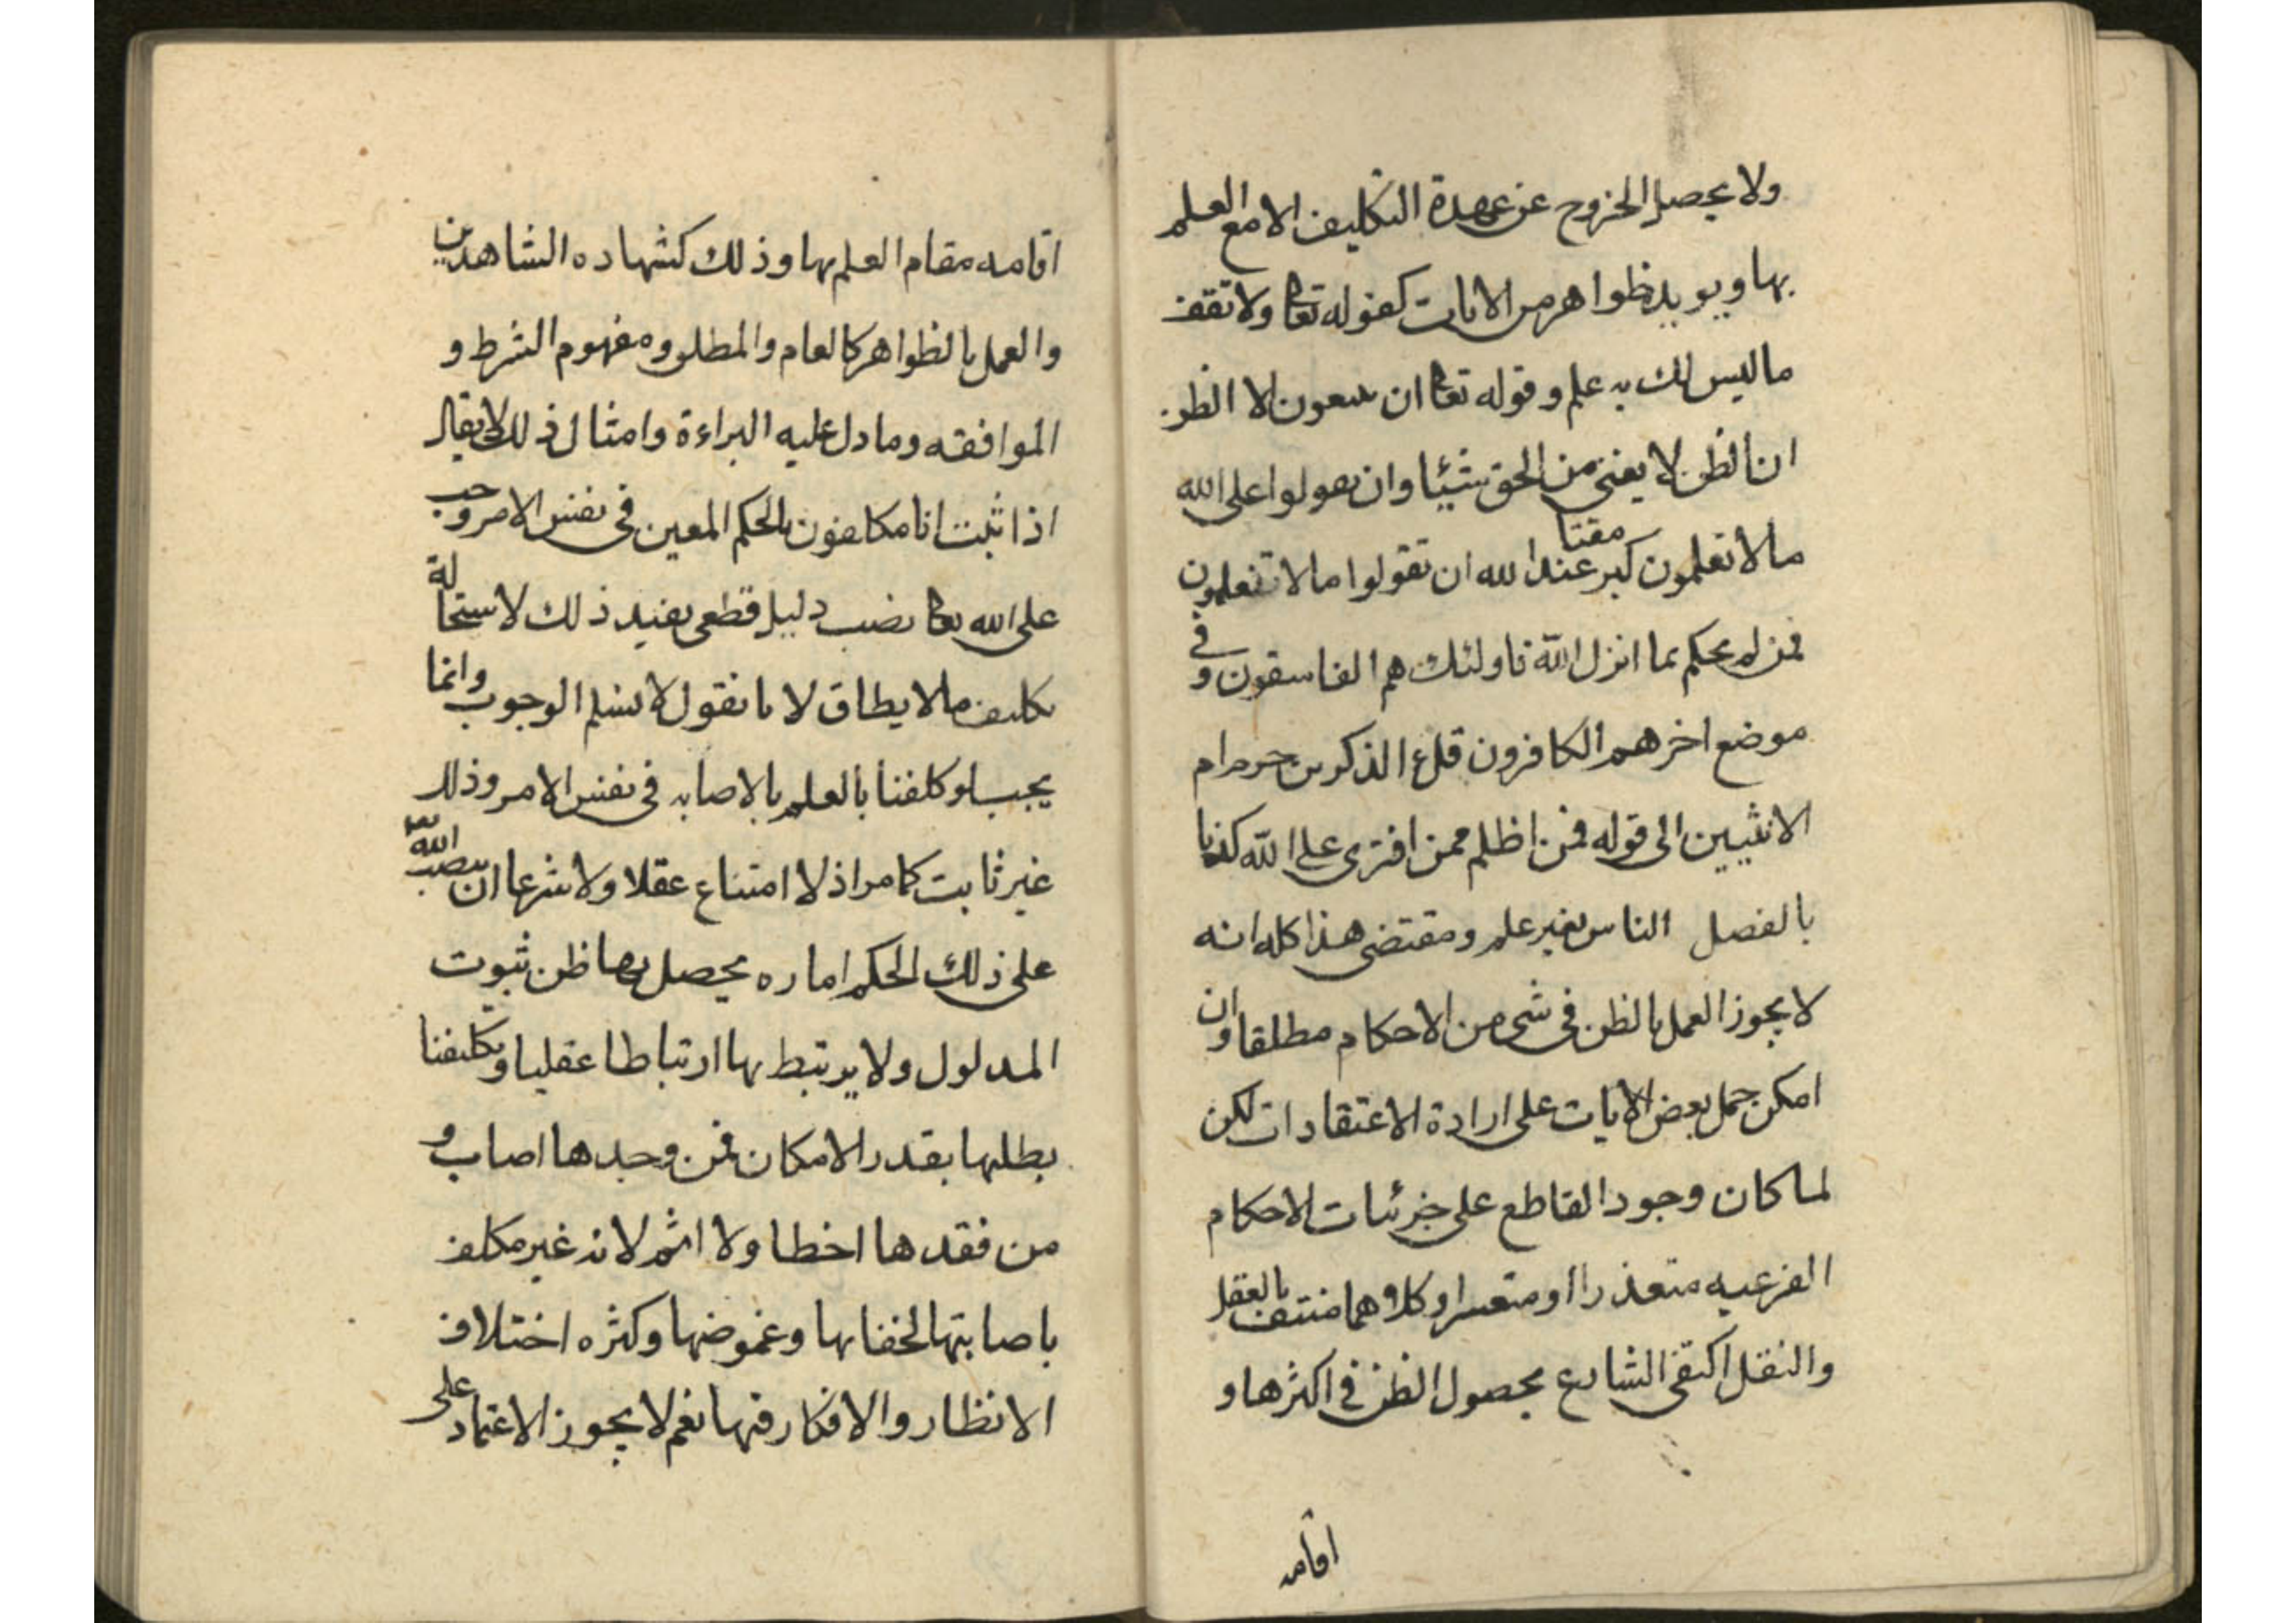 ولا يحصل الخروج عن عهدة التكليف الا مع العلم
بها ويويد ظواهر من الايات كقوله تعا ولا تقف
ما ليس لك به علم وقوله تعا ان يتبعون الا الظن
ان الظن لا يغنى من الحق شيئا وان تقولوا على الله
ما لا تعلمون كبر مقتا عند الله ان تقولوا ما لا تفعلون
فمن لم يحكم بما انزل الله فاولئك هم الفاسقون وفي
موضع اخر هم الكافرون قل ء الذكرين حرم ام
الانثيين الى قوله فمن اظلم ممن افترى على الله كذبا
بالفصل الناس بغير علم ومقتضى هذا كله انه
لا يجوز العمل بالظن فى شى من الاحكام مطلقا وان
امكن حمل بعض الايات على ارادة الاعتقادات لكن
لما كان وجود القاطع على جزئيات الاحكام
الفرعيه متعذرا او متعسرا وكلاهما منتف بالعقل
والنقل اكتفى الشارع بحصول الظن فى اكثرها و
اقامه
اقامه مقام العلم بها وذلك كشهاده الشاهدين
والعمل بالظواهر كالعام والمطلق ومفهوم الشرط و
الموافقه وما دل عليه البراءة وامثال ذلك لا يقال
اذا ثبت انا مكلفون بالحكم المعين فى نفس الامر وجب
على الله تعا نصب دليل قطعى يفيد ذلك لاستحالة
تكليف ما لا يطاق لانا نقول لا نسلم الوجوب وانما
يجب لو كلفنا بالعلم بالاصابه فى نفس الامر وذلك
غير ثابت كما مر اذ لا امتناع عقلا ولا شرعا ان ينصب الله تعا
على ذلك الحكم اماره يحصل بها ظن ثبوت
المدلول ولا يرتبط بها ارتباطا عقليا وتكليفنا
بطلبها بقدر الامكان فمن وجدها اصاب و
من فقدها اخطا ولا اثم لانه غير مكلف
باصابتها لخفائها وغموضها وكثره اختلاف
الانظار والافكار فيها نعم لا يجوز الاعتماد على